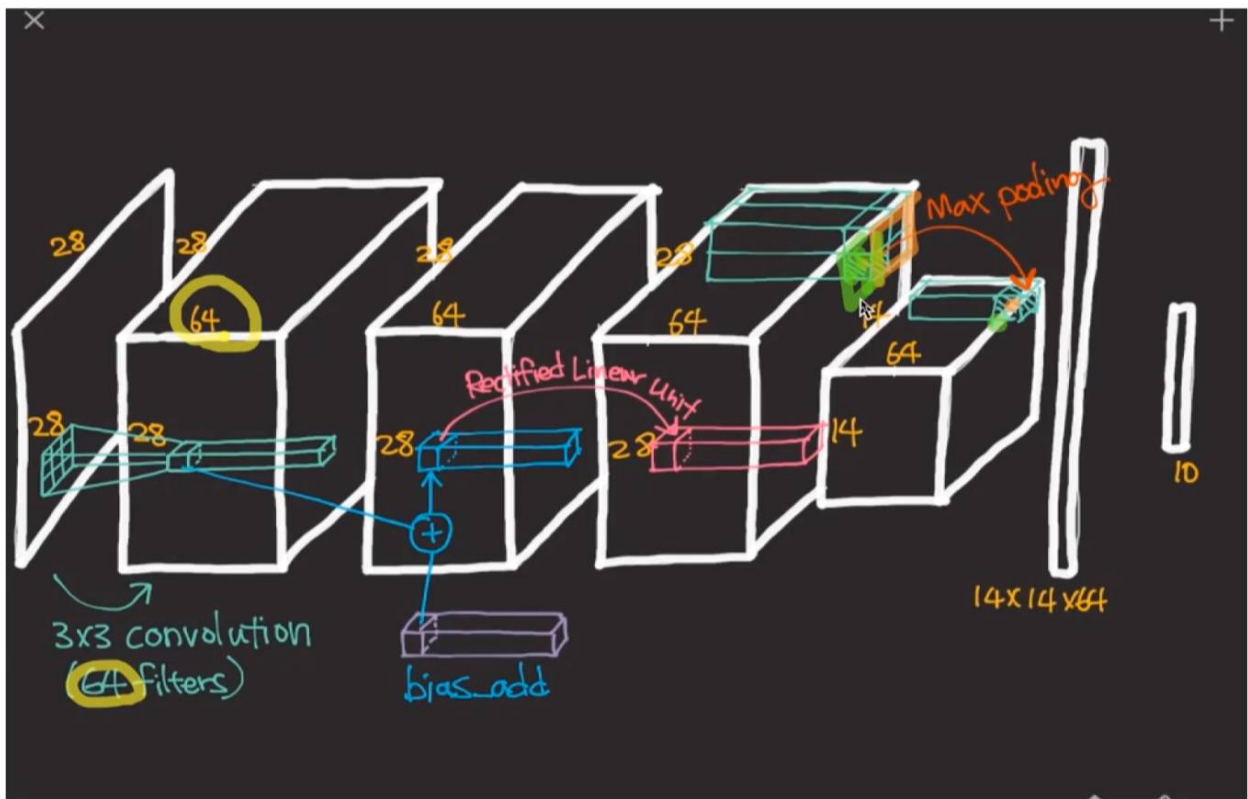 28
28
64
28
64
28
64
Max pooling
14
64
Rectified Linear Unit
28
28
28
28
14
10
14x14x64
3x3 convolution
(64 filters)
bias_add
+